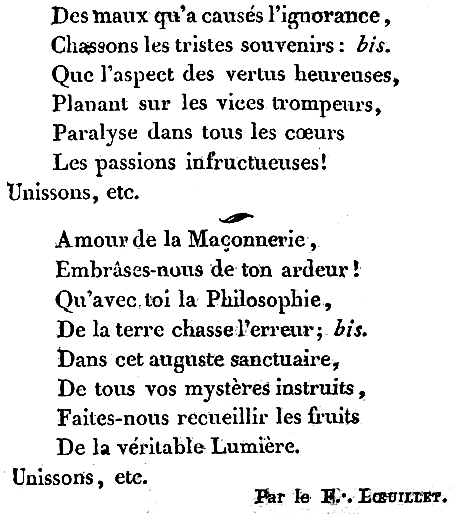 Des maux qu'a causés l'ignorance,
Chassons les tristes souvenirs : bis.
Que l'aspect des vertus heureuses,
Planant sur les vices trompeurs,
Paralyse dans tous les cœurs
Les passions infructueuses!
Unissons, etc.
Amour de la Maçonnerie,
Embrâses-nous de ton ardeur!
Qu'avec toi la Philosophie,
De la terre chasse l'erreur; bis.
Dans cet auguste sanctuaire,
De tous vos mystères instruits,
Faites-nous recueillir les fruits
De la véritable Lumière.
Unissons, etc.
Par le F∴ LŒUILLET.